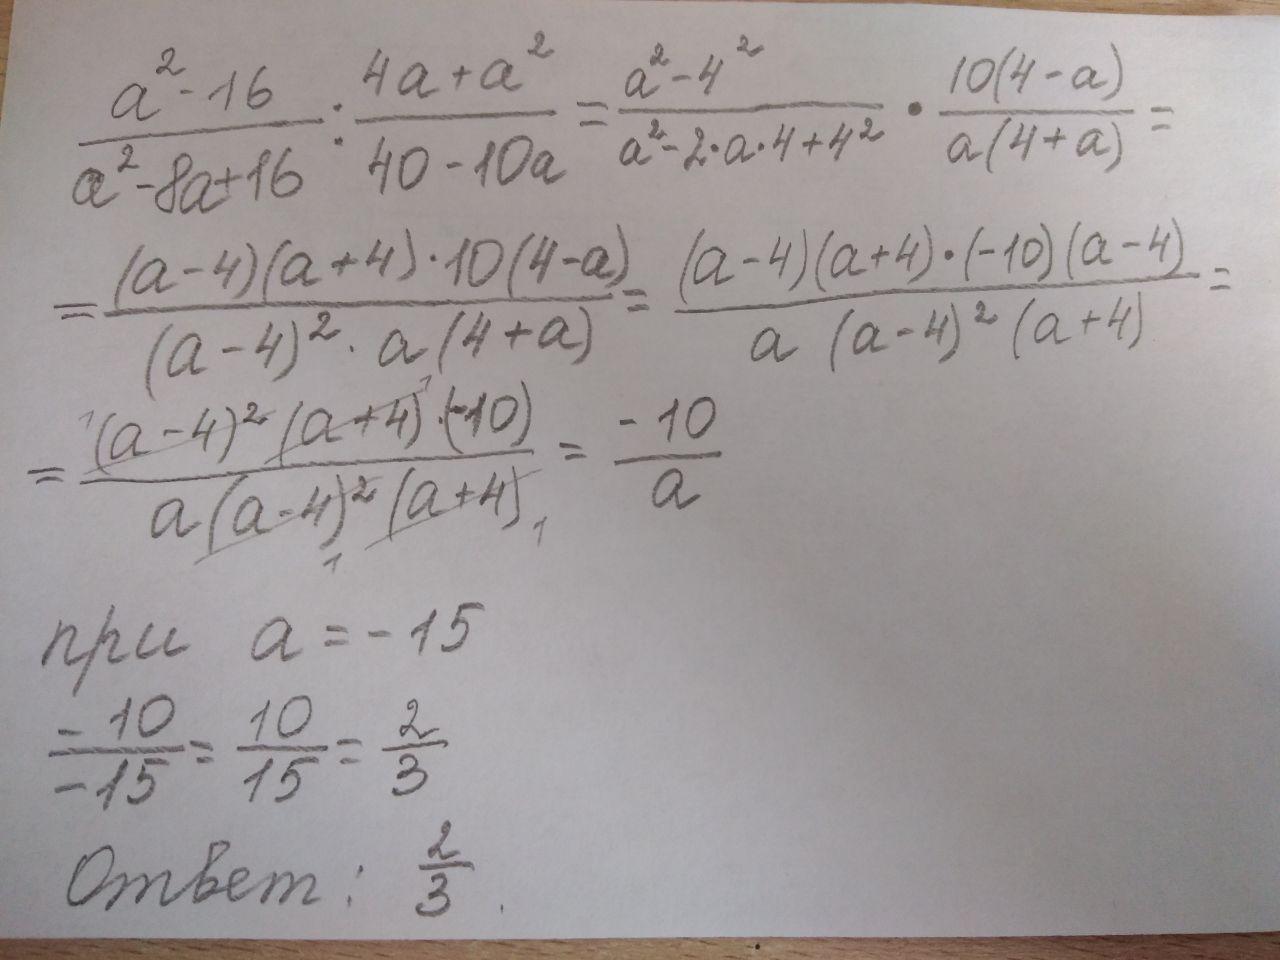 (a² - 16)/(a² - 8a + 16) : (4a + a²)/(40 - 10a) = (a² - 4²)/(a² - 2·a·4 + 4²) · (10(4 - a))/(a(4 + a)) =
= ((a - 4)(a + 4)·10(4 - a))/((a - 4)²·a(4 + a)) = ((a - 4)(a + 4)·(-10)(a - 4))/(a (a - 4)² (a + 4)) =
= ((a - 4)² (a + 4)·(-10))/(a(a - 4)² (a + 4)) = (-10)/a
при a = -15
(-10)/(-15) = 10/15 = 2/3
Ответ: 2/3.